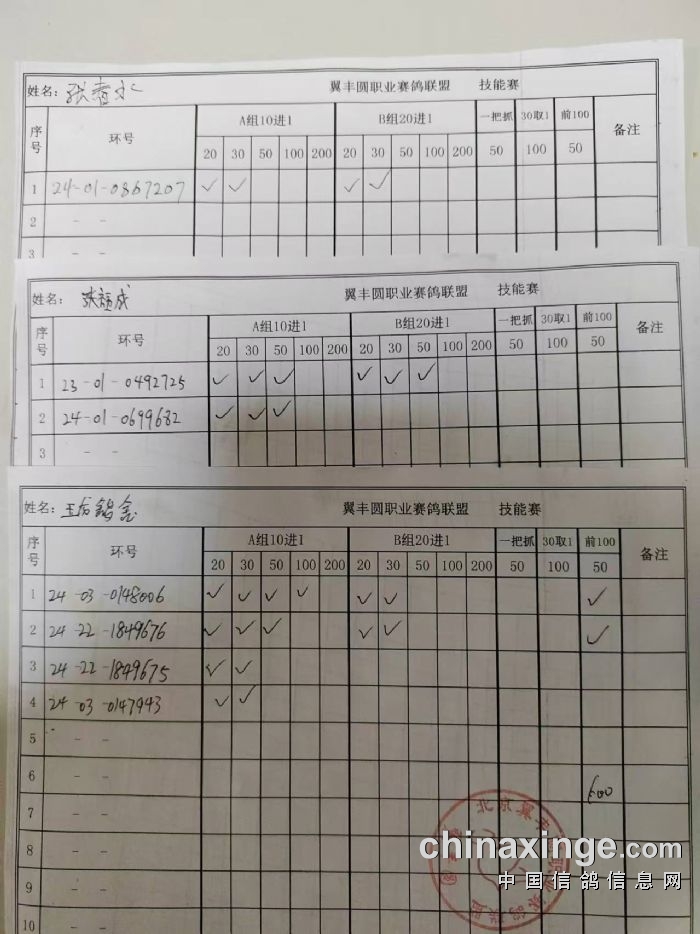 姓名: 张春水 翼丰圆职业赛鸽联盟 技能赛
序号 环号 A组10进1 B组20进1 一把抓 30取1 前100 备注
20 30 50 100 200 20 30 50 100 200 50 100 50
1 24-01-0867207 ✓ ✓ ✓ ✓
2 - -
3 - -
姓名: 翼丰圆职业赛鸽联盟 技能赛
序号 环号 A组10进1 B组20进1 一把抓 30取1 前100 备注
20 30 50 100 200 20 30 50 100 200 50 100 50
1 23-01-0492725 ✓ ✓ ✓ ✓ ✓ ✓
2 24-01-0699682 ✓ ✓ ✓
3 - -
姓名: 翼丰圆职业赛鸽联盟 技能赛
序号 环号 A组10进1 B组20进1 一把抓 30取1 前100 备注
20 30 50 100 200 20 30 50 100 200 50 100 50
1 24-03-0148006 ✓ ✓ ✓ ✓ ✓ ✓ ✓
2 24-22-1849676 ✓ ✓ ✓ ✓ ✓ ✓
3 24-22-1849675 ✓ ✓
4 24-03-0147943 ✓ ✓
5 - -
6 - - 600
7 - -
8 - -
9 - -
10 - -
chinaxinge.com
中国信鸽信息网